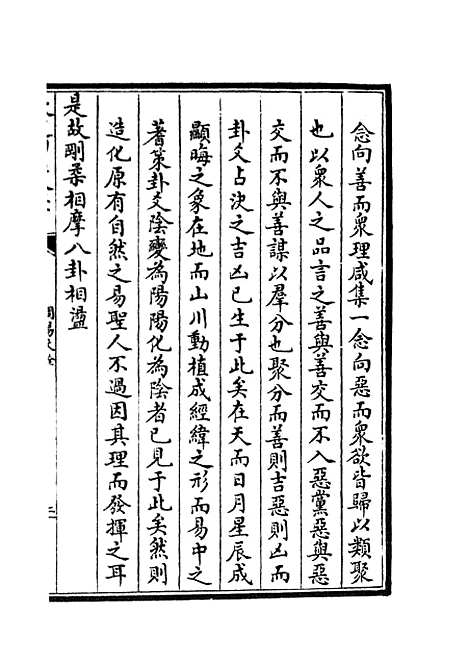 念向善而衆理咸集一念向惡而衆欲皆歸以類聚
也以衆人之品言之善與善交而不入惡黨惡與惡
交而不與善謀以羣分也聚分而善則吉惡則凶而
卦爻占決之吉凶已生于此矣在天而日月星辰成
顯晦之象在地而山川動植成經緯之形而易中之
蓍策卦爻陰變為陽陽化為陰者已見于此矣然則
造化原有自然之易聖人不過因其理而發揮之耳
是故剛柔相摩八卦相盪